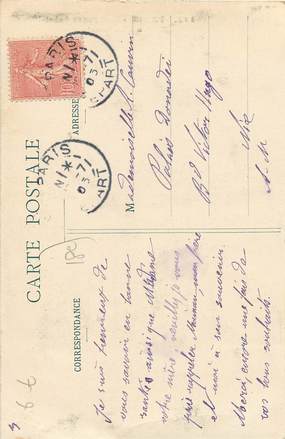 CARTE POSTALE
CORRESPONDANCE
ADRESSE
PARIS
DÉPART
PARIS
DÉPART
10
Mademoiselle
Palais Donadei
Bd Victor Hugo
Nice
A. M.
Je suis heureux de
vous savoir en bonne
santé ainsi que Madame
votre mère, veuillez je vous
prie rappeler Maman, mon père
et moi à son souvenir.
Merci encore une fois de
vos bons souhaits.